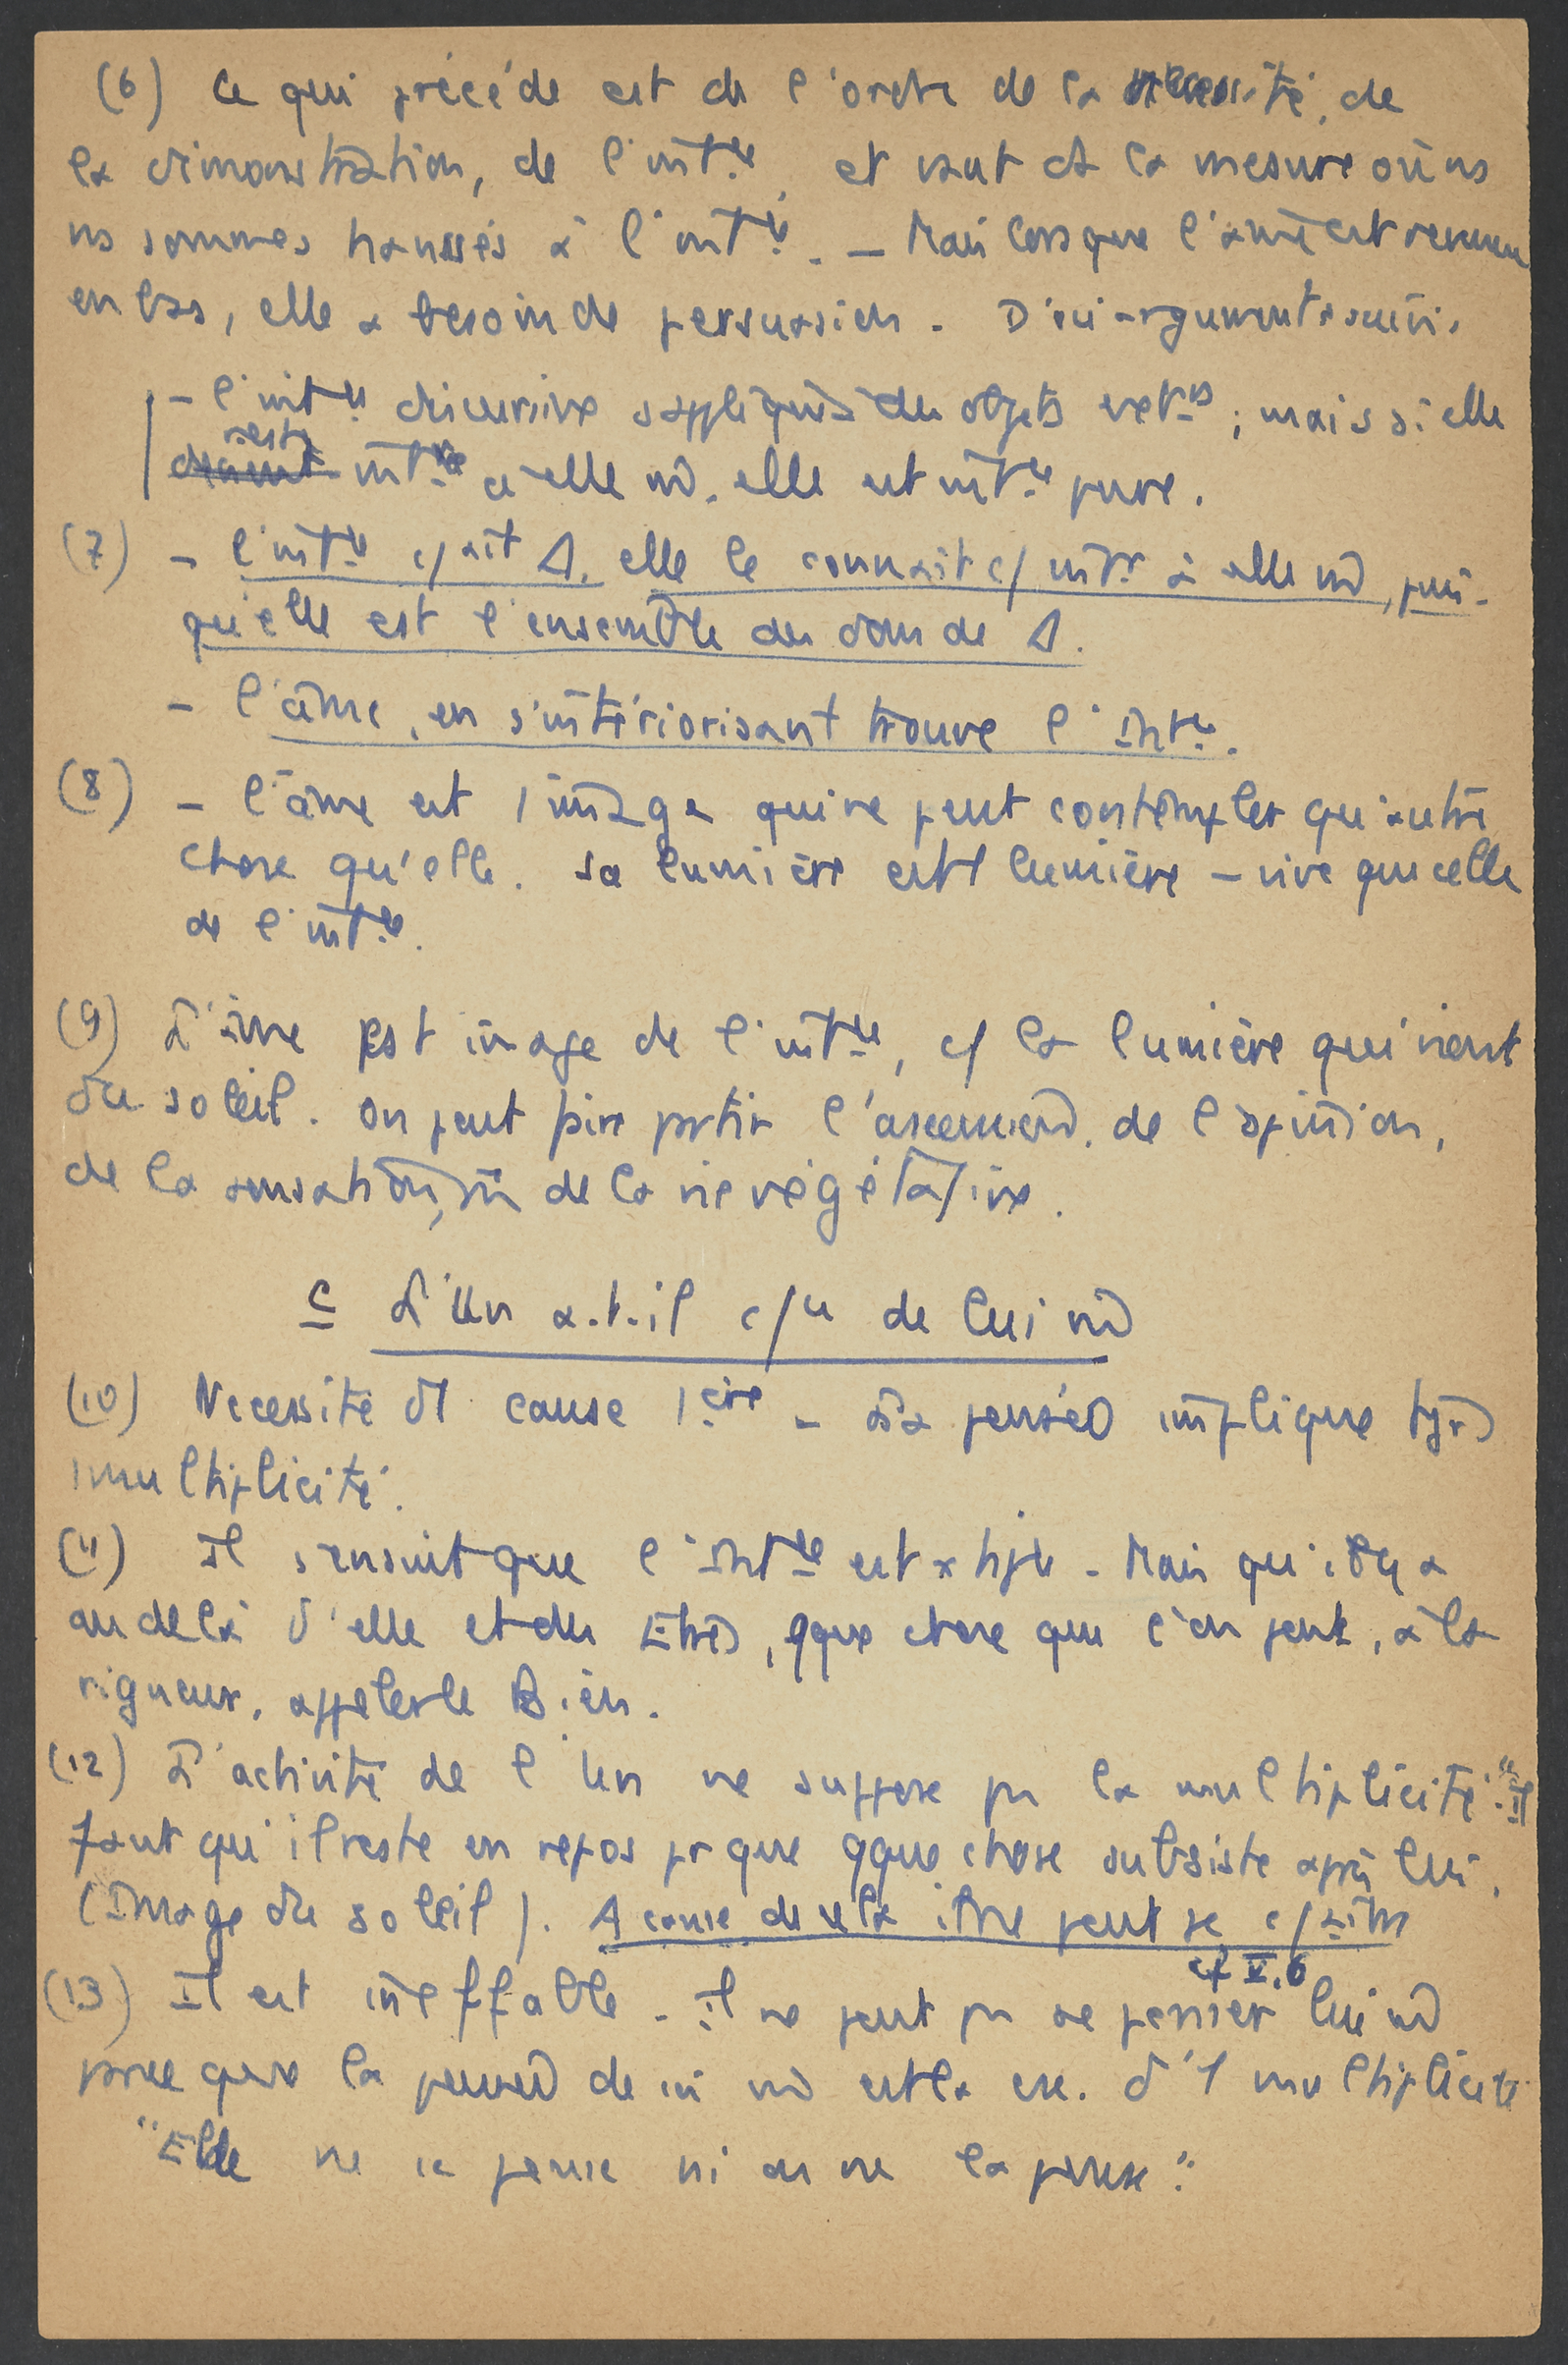 (6) Ce qui précède est de l'ordre de la nécessité, de
la démonstration, de l'int.ce, et vaut ds la mesure où ns
ns sommes haussés à l'int.ce. – Mais lorsque l'âme est revenue
en bas, elle a besoin de persuasion. D'où arguments suiv.
– l'int.ce discursive s'applique à des objets ext.rs ; mais si elle
reste int.re à elle m̂, elle est int.ce pure.
(7) – l'int.ce c/aît Δ, elle le connaît c/ intr à elle m̂, puis-
qu'elle est l'ensemble des dons de Δ.
– l'âme, en s'intériorisant trouve l'Int.ce.
(8) – l'âme est 1 image qui ne peut contempler qu'autre
chose qu'elle. Sa lumière est 1 lumière – vive que celle
de l'int.ce.
(9) L'âme est image de l'int.ce, c/ la lumière qui vient
du soleil. On peut faire partir l'ascension de l'opinion,
de la sensation, de la vie végétative.
C L'Un a.t.il c/ce de lui m̂
(10) Nécessité d'1 cause 1ère – La pensée implique tjrs
1 multiplicité.
(11) Il s'ensuit que l'Int.ce est x tiple. Mais qu'il y a
au delà d'elle et des Êtres, qque chose que l'on peut, à la
rigueur, appeler le Bien.
(12) L'activité de l'Un ne suppose pas la multiplicité. "Il
faut qu'il reste en repos pr que qque chose subsiste après lui.
(Image du soleil). A cause de cela l'âme peut se c/aître
(13) Il est ineffable – Il ne peut pas se penser lui m̂
cf V.6
parce que la pensée de soi m̂ est la csc. d'1 multiplicité
"Elle ne se pense ni on ne la pense".